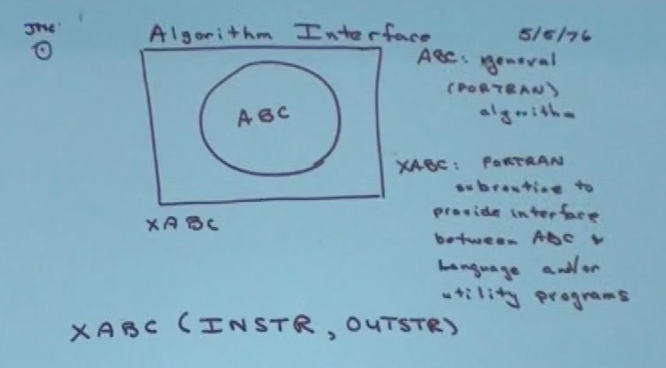 JMC: Algorithm Interface 5/5/76
①
ABC: general
(FORTRAN)
algorithm
ABC
XABC: FORTRAN
subroutine to
provide interface
between ABC &
language and/or
utility programs
XABC
XABC (INSTR, OUTSTR)